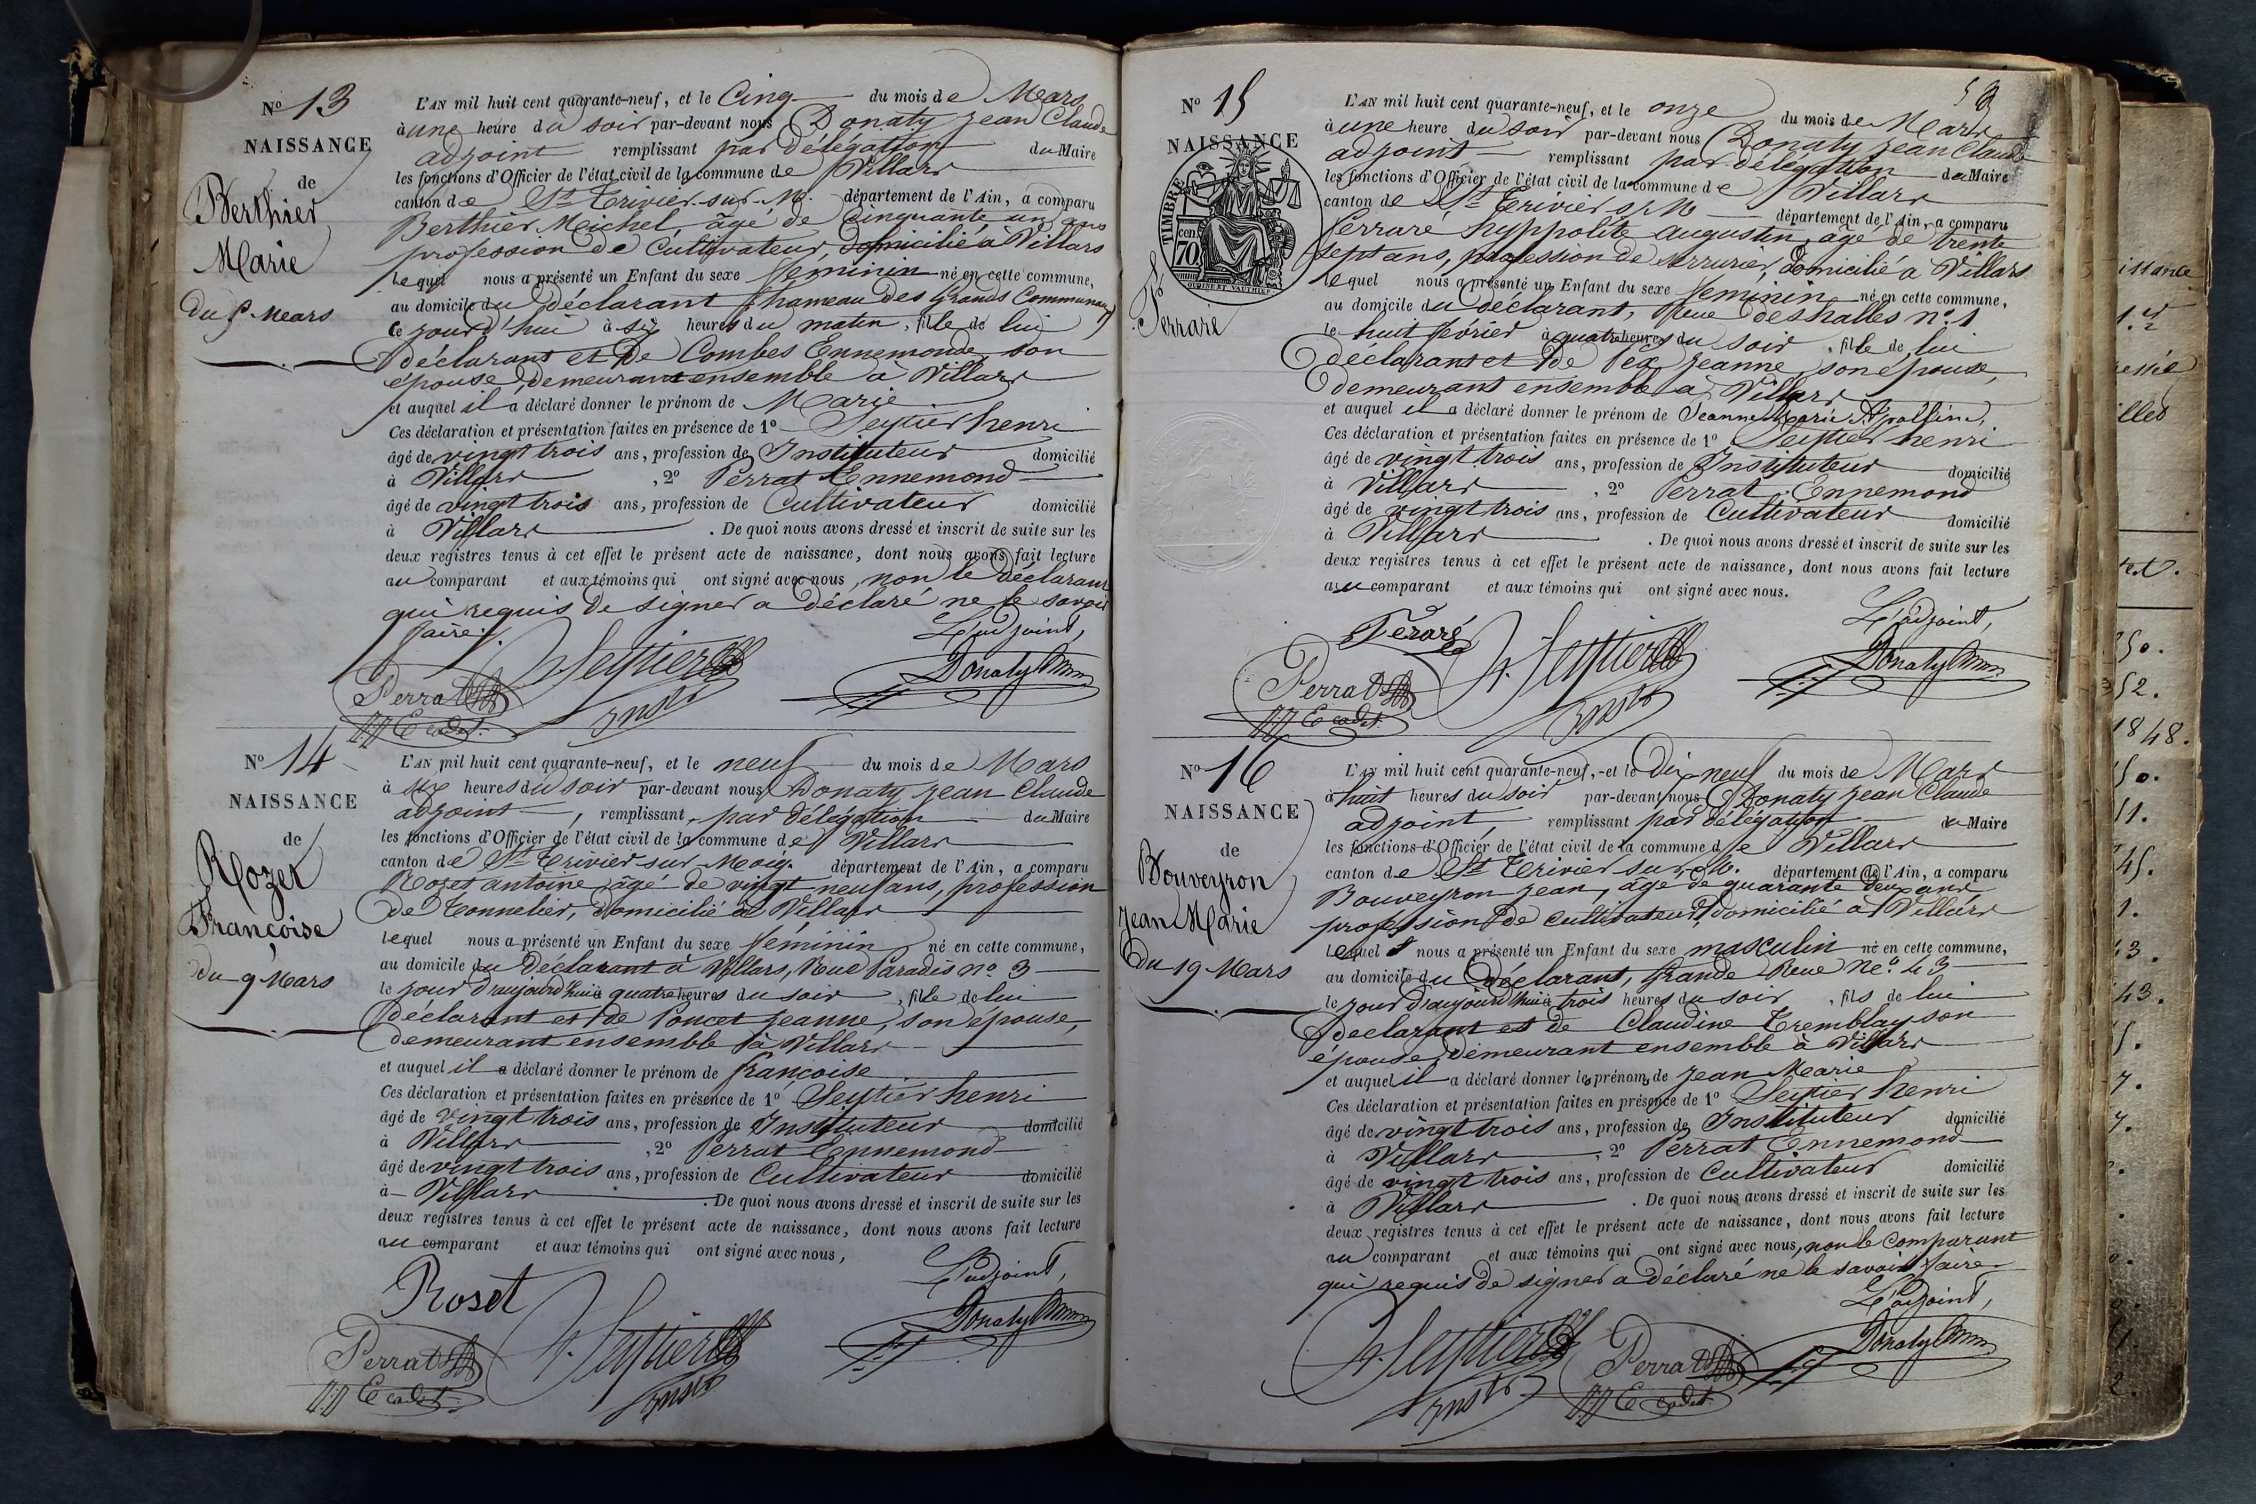 N° 13
NAISSANCE
de
Berthier
Marie
du 5 Mars
L'AN mil huit cent quarante-neuf, et le Cinq du mois de Mars
à une heure du soir par-devant nous Donaty Jean Claude
adjoint remplissant par délégation du Maire
les fonctions d'Officier de l'état civil de la commune de Villars
canton de St Trivier-sur-M. département de l'Ain, a comparu
Berthier Meichel, âgé de Cinquante un ans
profession de Cultivateur, domicilié à Villars
lequel nous a présenté un Enfant du sexe féminin né en cette commune,
au domicile du déclarant, hameau des Grands Communaux
ce jourd'hui à six heures du matin, fille de lui
déclarant et de Combes Ennemonde, son
épouse, demeurant ensemble à Villars
et auquel il a déclaré donner le prénom de Marie
Ces déclaration et présentation faites en présence de 1° Seytier henri
âgé de vingt trois ans, profession de Instituteur domicilié
à Villars , 2° Perrat Ennemond
âgé de vingt trois ans, profession de Cultivateur domicilié
à Villars . De quoi nous avons dressé et inscrit de suite sur les
deux registres tenus à cet effet le présent acte de naissance, dont nous avons fait lecture
au comparant et aux témoins qui ont signé avec nous, non le déclarant
qui requis de signer a déclaré ne le savoir
faire.
L'adjoint,
H. Seytier
Donaty
Perrat
E cadet
Instr
N° 14
NAISSANCE
de
Rozet
Françoise
du 9 Mars
L'AN mil huit cent quarante-neuf, et le neuf du mois de Mars
à six heures du soir par-devant nous Donaty Jean Claude
adjoint , remplissant par délégation du Maire
les fonctions d'Officier de l'état civil de la commune de Villars
canton de St Trivier sur Moig. département de l'Ain, a comparu
Rozet antoine âgé de vingt neuf ans, profession
de Tonnelier, domicilié à Villars
lequel nous a présenté un Enfant du sexe féminin né en cette commune,
au domicile du déclarant à Villars, Rue Paradis n° 3
le jour d'aujourd'hui à quatre heures du soir , fille de lui
déclarant et de Poncet Jeanne, son épouse,
demeurant ensemble à Villars
et auquel il a déclaré donner le prénom de françoise
Ces déclaration et présentation faites en présence de 1° Seytier henri
âgé de vingt trois ans, profession de Instituteur domicilié
à Villars , 2° Perrat Ennemond
âgé de vingt trois ans, profession de Cultivateur domicilié
à Villars . De quoi nous avons dressé et inscrit de suite sur les
deux registres tenus à cet effet le présent acte de naissance, dont nous avons fait lecture
au comparant et aux témoins qui ont signé avec nous,
L'adjoint,
Roset
H. Seytier
Donaty
Perrat
E cadet
Instr
N° 15
NAISSANCE
TIMBRE
cen
70
Ferrare
L'AN mil huit cent quarante-neuf, et le onze du mois de Mars
à une heure du soir par-devant nous Donaty Jean Claude
adjoint remplissant par délégation du Maire
les fonctions d'Officier de l'état civil de la commune de Villars
canton de St Trivier s M département de l'Ain, a comparu
ferrare hyppolite augustin, âgé de trente
sept ans, profession de serrurier, domicilié à Villars
lequel nous a présenté un Enfant du sexe féminin né en cette commune,
au domicile du déclarant, Rue des halles n° 1
le huit février à quatre heures du soir , fille de lui
déclarant et de Jeanne, son épouse,
demeurant ensemble à Villars
et auquel il a déclaré donner le prénom de Jeanne Marie
Ces déclaration et présentation faites en présence de 1° Seytier henri
âgé de vingt trois ans, profession de Instituteur domicilié
à Villars , 2° Perrat Ennemond
âgé de vingt trois ans, profession de Cultivateur domicilié
à Villars . De quoi nous avons dressé et inscrit de suite sur les
deux registres tenus à cet effet le présent acte de naissance, dont nous avons fait lecture
au comparant et aux témoins qui ont signé avec nous.
L'adjoint,
Feraré
H. Seytier
Donaty
Perrat
E cadet
Instr
N° 16
NAISSANCE
de
Bouveyron
Jean Marie
du 19 Mars
L'AN mil huit cent quarante-neuf, et le Dix-neuf du mois de Mars
à huit heures du soir par-devant nous Donaty Jean Claude
adjoint, remplissant par délégation du Maire
les fonctions d'Officier de l'état civil de la commune de Villars
canton de St Trivier sur M. département de l'Ain, a comparu
Bouveyron Jean, âgé de quarante deux ans
profession de cultivateur, domicilié à Villars
lequel nous a présenté un Enfant du sexe masculin né en cette commune,
au domicile du déclarant, Grande Rue N° 43
le jour d'aujourd'hui à trois heures du soir , fils de lui
déclarant et de Claudine Tremblay son
épouse, demeurant ensemble à Villars
et auquel il a déclaré donner les prénoms de Jean Marie
Ces déclaration et présentation faites en présence de 1° Seytier henri
âgé de vingt trois ans, profession de Instituteur domicilié
à Villars , 2° Perrat Ennemond
âgé de vingt trois ans, profession de Cultivateur domicilié
à Villars . De quoi nous avons dressé et inscrit de suite sur les
deux registres tenus à cet effet le présent acte de naissance, dont nous avons fait lecture
au comparant et aux témoins qui ont signé avec nous, non le comparant
qui requis de signer a déclaré ne le savoir faire
L'adjoint,
H. Seytier
Perrat
Donaty
Instr
E cadet